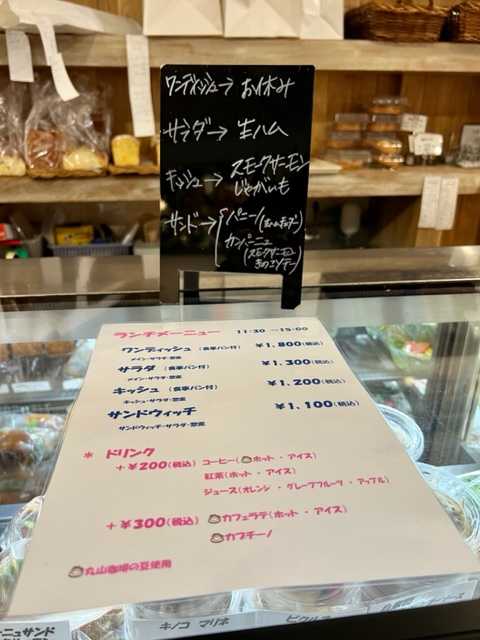 ワンディッシュ→ お休み
サラダ→ 生ハム
キッシュ→ スモークサーモン
じゃがいも
サンド→ パニーノ(ハムチェダー)
カンパーニュ
(スモークサーモン
きのこソテー)
ランチメニュー 11:30 ー15:00
ワンディッシュ (食事パン付) ¥1,800(税込)
メイン・サラダ・惣菜
サラダ (食事パン付) ¥1,300(税込)
メイン・サラダ・惣菜
キッシュ (食事パン付) ¥1,200(税込)
キッシュ・サラダ・惣菜
サンドウィッチ ¥1,100(税込)
サンドウィッチ・サラダ・惣菜
* ドリンク
+¥200(税込) コーヒー(ホット・アイス)
紅茶(ホット・アイス)
ジュース(オレンジ・グレープフルーツ・アップル)
+¥300(税込) カフェラテ(ホット・アイス)
カプチーノ
丸山珈琲の豆使用
ーニュサンド
キノコ マリネ
ピクルス